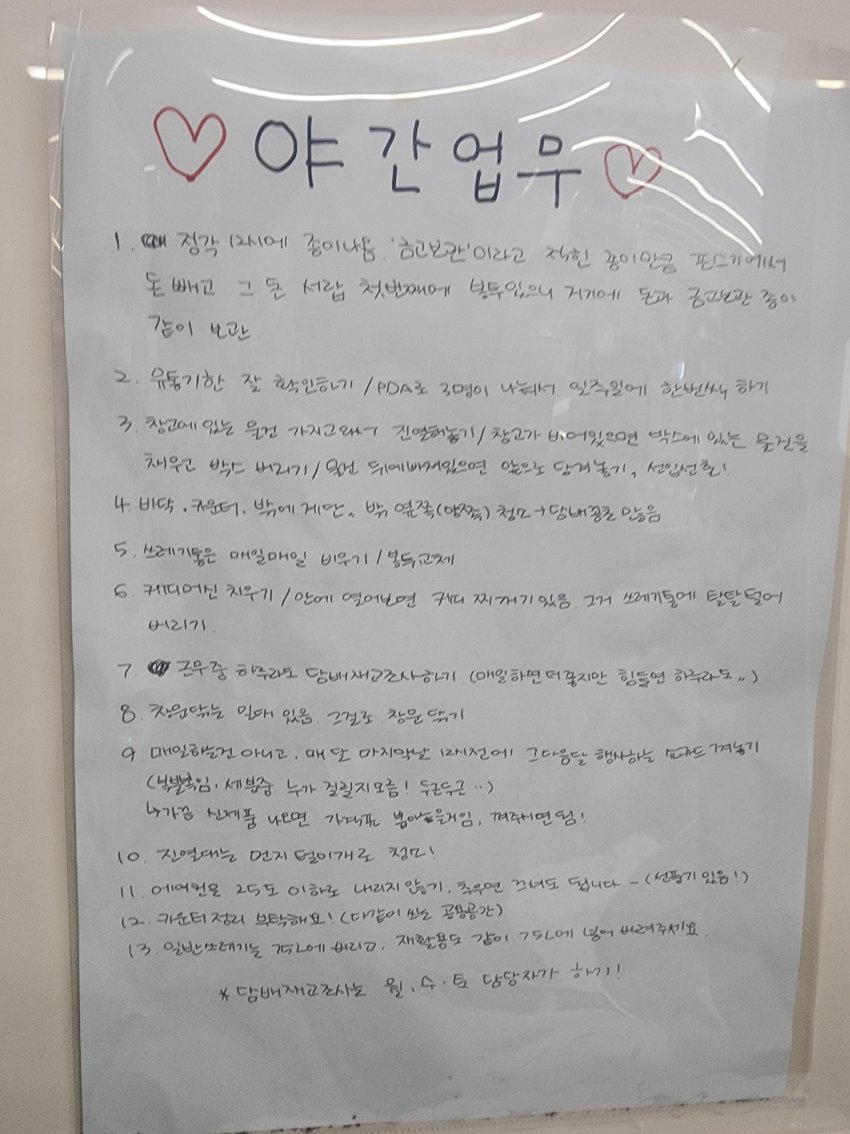 ♡ 야간업무 ♡
1. 정각 12시에 종이나옴. '금고보관'이라고 적힌 종이만큼 포스기에서
돈 빼고 그 돈 서랍 첫번째에 봉투있으니 거기에 돈과 금고보관 종이
같이 보관.
2. 유통기한 잘 확인하기 / PDA로 3명이 나눠서 일주일에 한번씩 하기
3. 창고에 있는 물건 가지고와서 진열해놓기 / 창고가 비어있으면 박스에 있는 물건을
채우고 박스 버리기 / 물건 뒤에빠져있으면 앞으로 당겨놓기, 선입선출!
4. 바닥, 카운터, 밖에 계단, 밖 옆쪽(양쪽) 청소→담배꽁초 많음
5. 쓰레기통은 매일매일 비우기 / 봉투교체
6. 커피머신 치우기 / 안에 열어보면 커피 찌꺼기있음. 그거 쓰레기통에 탈탈털어
버리기.
7. 근무중 하루라도 담배재고조사하기. (매일하면 더좋지만 힘들면 하루라도..)
8. 창문닦는 밀대 있음. 그걸로 창문 닦기
9. 매일하는건 아니고, 매 달 마지막날 12시전에 그다음달 행사하는 껴놓기
(복불복임, 세분중 누가 걸릴지모름! 두근두근..)
↳가끔 신제품 나오면 가격표 뽑아놓을거임, 껴주시면 됨!
10. 진열대는 먼지 털이개로 청소!
11. 에어컨은 25도 이하로 내리지 않기, 추우면 끄셔도 됩니다 - (선풍기 있음!)
12. 카운터정리 부탁해요! (다같이 쓰는 공용공간)
13. 일반쓰레기는 75L에 버리고, 재활용도 같이 75L에 넣어 버려주세요.
* 담배재고조사는 월.수.토 담당자가 하기!